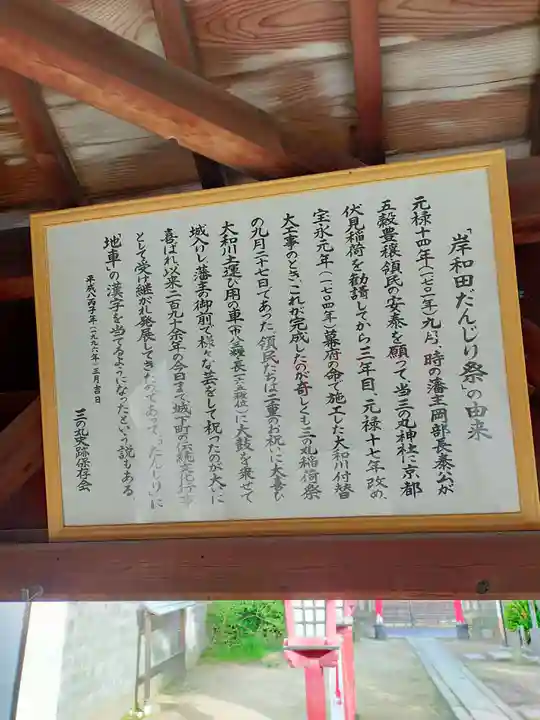 「岸和田だんじり祭」の由来
元禄十四年(一七〇一年)九月、時の藩主岡部長泰公が
五穀豊穣領民の安泰を願って、当三の丸神社に京都
伏見稲荷を勧請してから三年目、元禄十七年改め、
宝永元年(一七〇四年)幕府の命で施工した大和川付替
大工事のとき、これが完成したのが奇しくも三の丸稲荷祭
の九月二十七日であった。領民たちは二重のお祝いに大喜び
大和川土運び用の車に太鼓を乗せて
城入りし藩主の御前で様々な芸をして祝ったのが大いに
喜ばれ以来二百九十余年の今日まで城下町の伝統文化行事
として受け継がれ発展してきたのであって、「だんじり」に
「地車」の漢字を当てるようになったという説もある。
平成八丙子年(一九九六年)正月吉日
三の丸史跡保存会